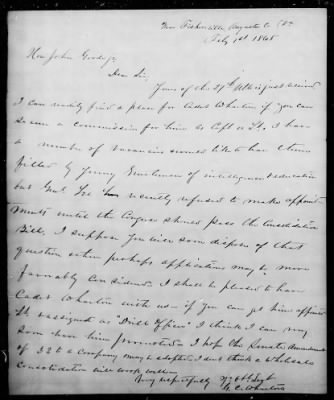 Near Fishersville, Augusta Co
Feby 1st 1865
Hon John Goode Jr
Dear Sir,
Yours of the 27th Ult is just received
I can readily find a place for Cadet Wharton if you can
secure a commission for him as Capt or Lt. I have
a number of vacancies &amp; would like to have them
filled by young Gentlemen of intelligence &amp; education
but Genl Lee has recently refused to make appoint-
ments until the Congress should pass the Consolidation
Bill, I suppose you will soon dispose of that
question when perhaps applications may be more
favorably considered. I shall be pleased to have
Cadet Wharton with us - if you can get him appointed
Lt &amp; assigned as "Drill Officer" I think I can very
soon have him promoted. I hope the Senate Amendment
of 32 to a Company may be adopted I dont think a wholesale
Consolidation will work well -
Very respectfully yr obt Svt
G. C. Wharton